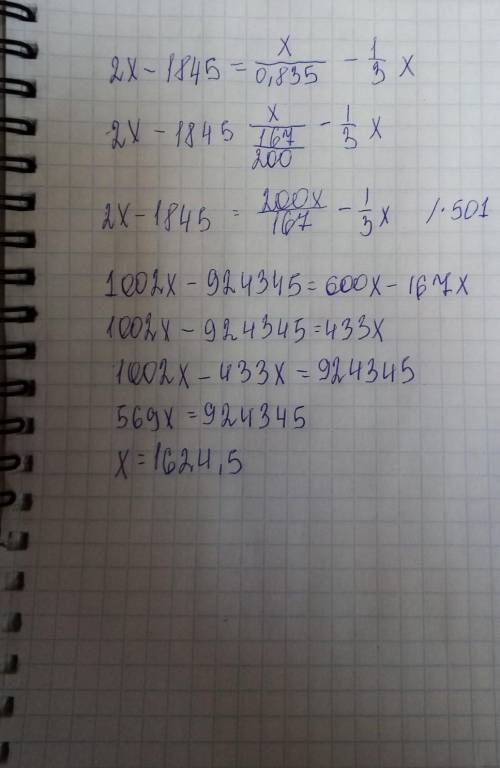 2x - 1845 = x/0,835 - 1/3 x
2x - 1845 x/(167/200) - 1/3 x
2x - 1845 = 200x/167 - 1/3 x /·501
1002x - 924345 = 600x - 167x
1002x - 924345 = 433x
1002x - 433x = 924345
569x = 924345
x = 1624,5